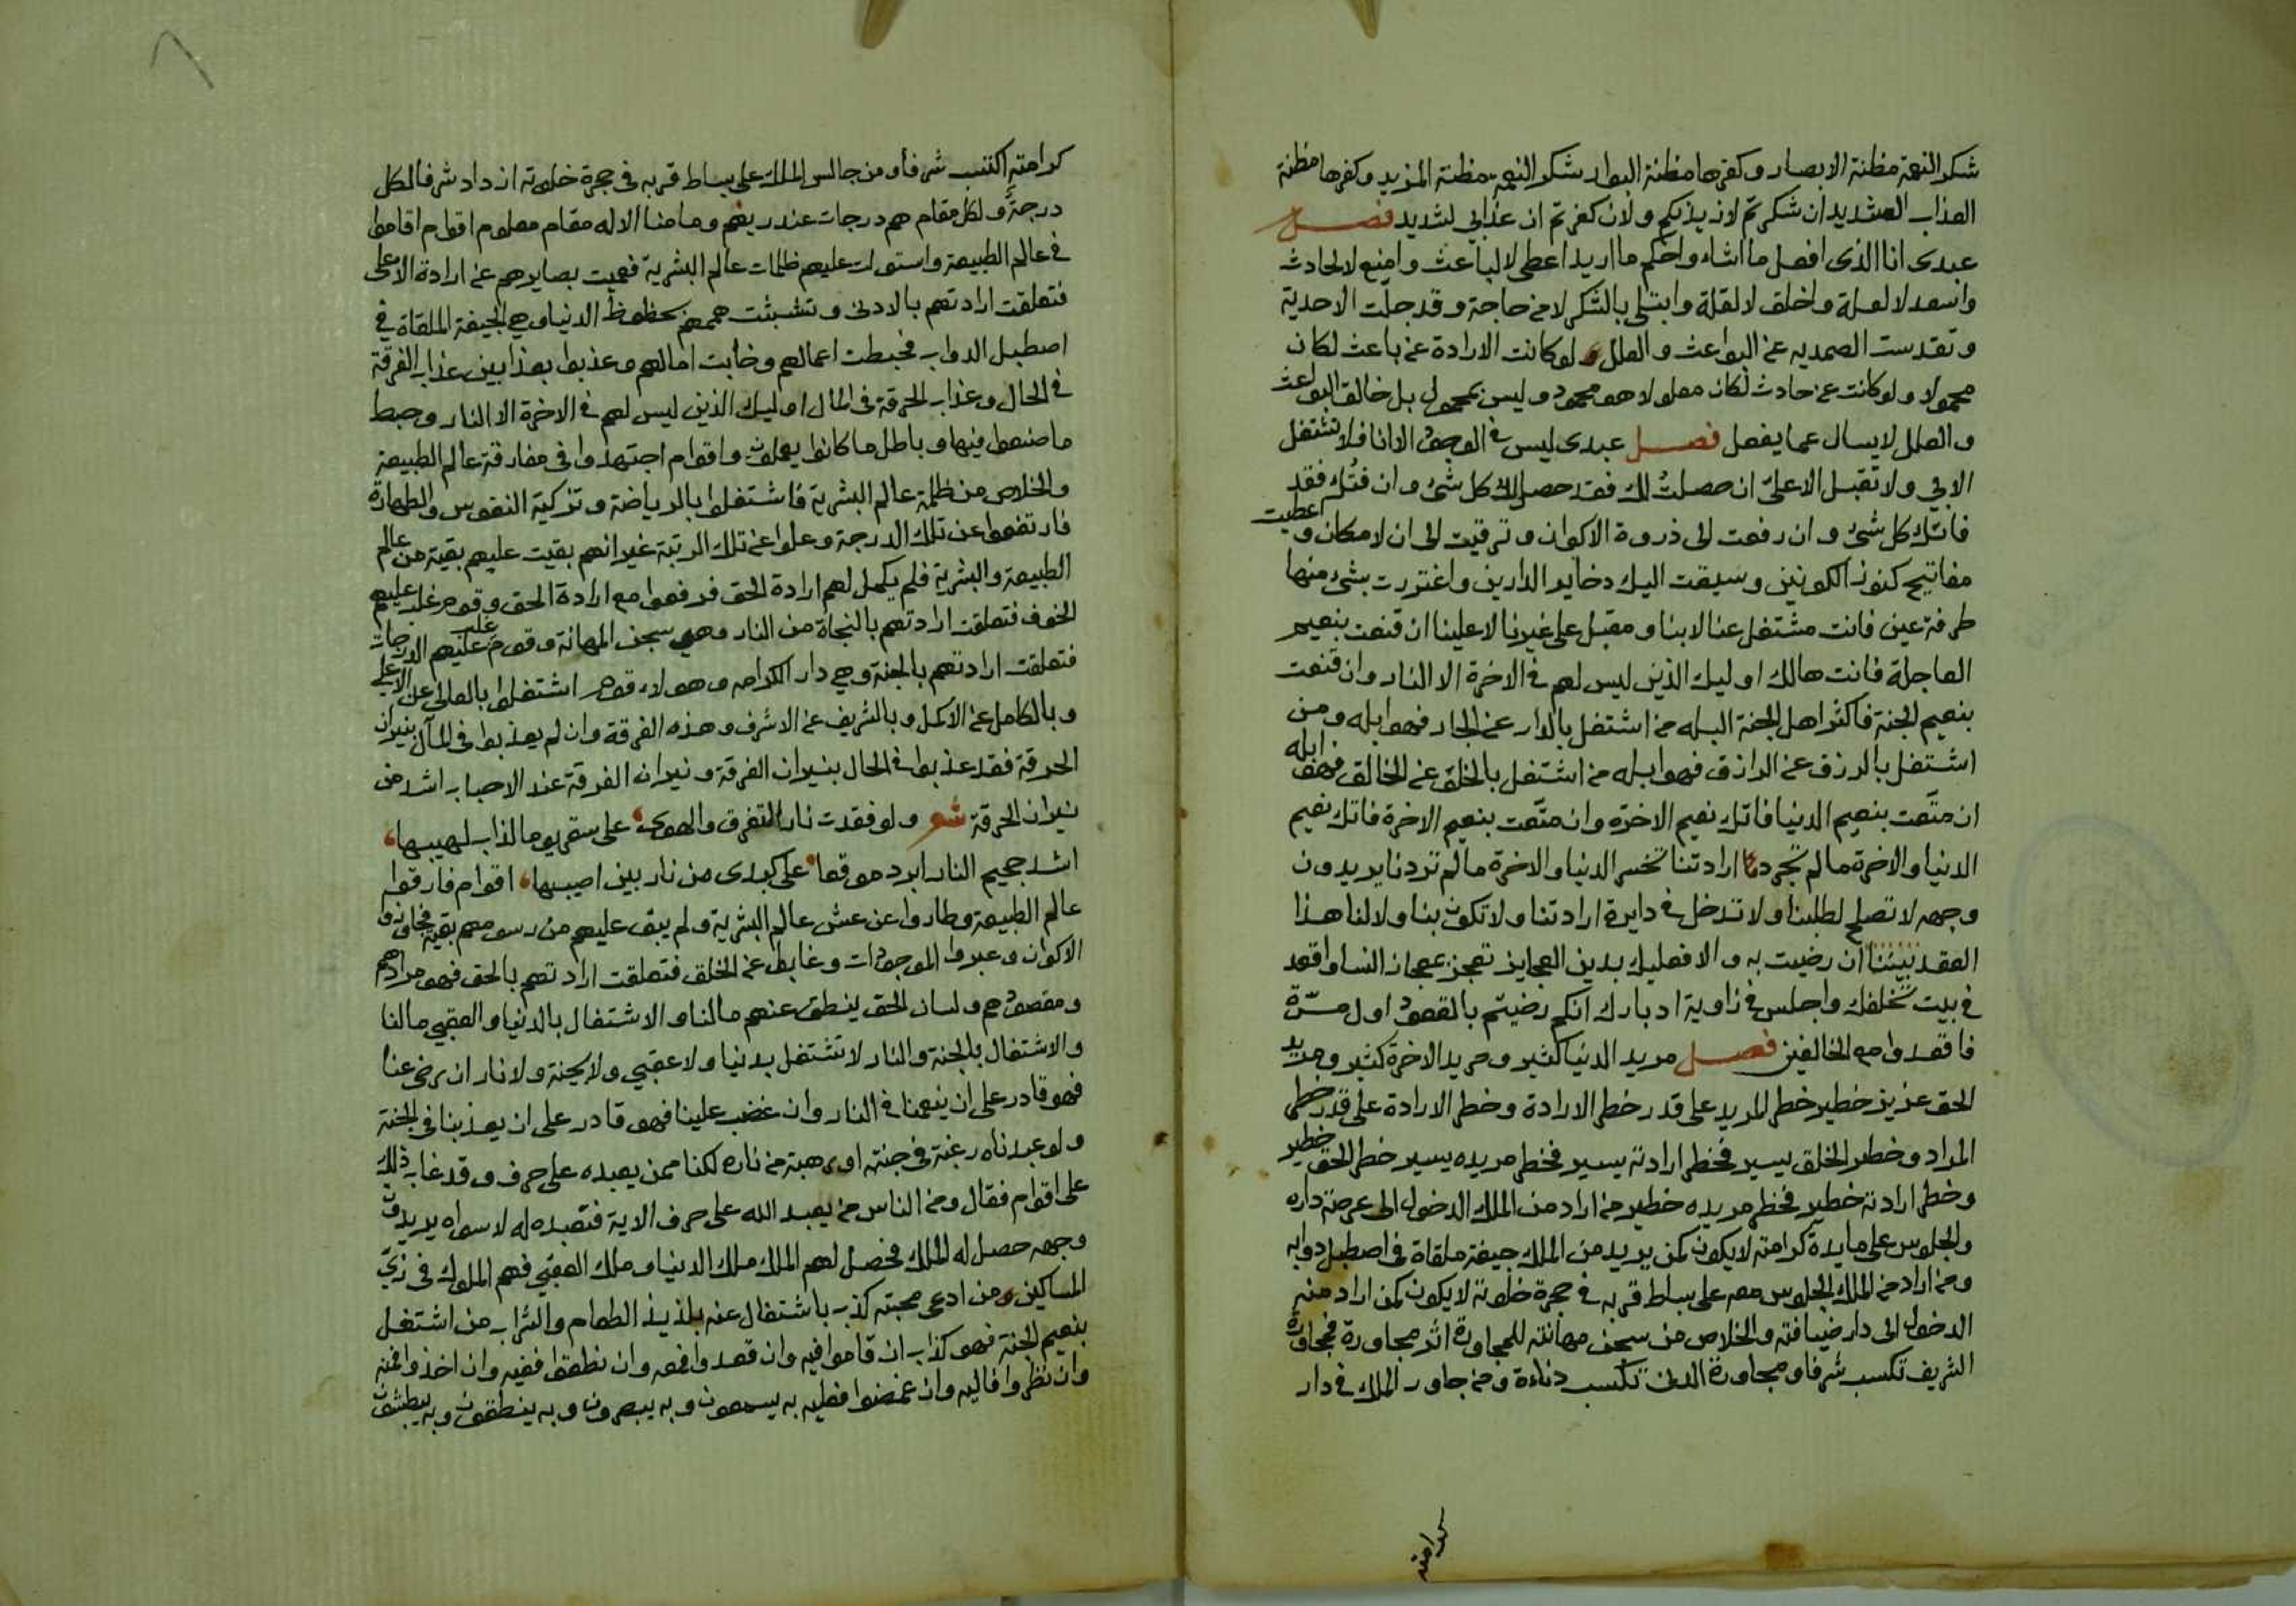 شكر النعمة مظنة الابصار وكفرها مظنة البوار شكر النعمة مظنة المزيد وكفرها مظنة
العذاب الشديد ان شكرتم لازيدنكم ولان كفرتم ان عذابي لشديد فصل
عبدى انا الذى افعل ما اشاء واحكم ما اريد اعطى لا لباعث وامنع لا لحادث
واسعد لا لعلة واخلق لا لقلة وابتلى بالشكر لا من حاجة وقد جلت الاحدية
وتقدست الصمديه عن البواعث والعلل ولو كانت الارادة عن باعث لكان
محمولا ولو كانت عن حادث لكان معلولا هو محمود وليس بمحمول بل خالق البواعث
والعلل لا يسال عما يفعل فصل عبدى ليس في الوجود الا انا فلا تشتغل
الا بي ولا تقبل الا علىّ ان حصلتُ لك فقد حصل لك كل شئ وان فتُّك فقد
فاتك كل شئ وان رفعت الى ذروة الاكوان وترقيت الى ان لا مكان واعطيت
مفاتيح كنوز الكونين وسيقت اليك دخاير الدارين واغتررت بشئ منها
طرفة عين فانت مشتغل عنا لا بنا ومقبل على غيرنا لا علينا ان قنعت بنعيم
العاجلة فانت هالك اوليك الذين ليس لهم في الاخرة الا النار وان قنعت
بنعيم الجنة فاكثر اهل الجنة البله من اشتغل بالدار عن الجار فهو ابله ومن
اشتغل بالرزق عن الرازق فهو ابله من اشتغل بالخلق عن الخالق فهو ابله
ان متّعت بنعيم الدنيا فاتك نعيم الاخرة وان متّعت بنعيم الاخرة فاتك نعيم
الدنيا والاخرة ما لم تجرد ارادتنا تخسر الدنيا والاخرة ما لم تردنا يريدون
وجهه لا تصلح لطلبنا ولا تدخل في دايرة ارادتنا ولا تكون بنا ولا لنا هذا
العقد بيننا ان رضيت به والا فعليك بدين العجايز تعجز عجان النسا واقعد
في بيت تخلفك واجلس في زاوية ادبارك انكم رضيتم بالقعود اول مرّة
فاقعدوا مع الخالفين فصل مريد الدنيا كثير ومريد الاخرة كثير ومريد
الحق عزيز خطير خطر المريد على قدر خطر الارادة وخطر الارادة على قدر خطر
المراد وخطر الخلق يسير فخطر ارادته يسير فخطر مريده يسير خطر الحق خطير
وخطر ارادته خطير فخطر مريده خطير من اراد من الملك الدخول الى عرصة داره
والجلوس على مايدة كرامته لا يكون كمن يريد من الملك جيفة ملقاة في اصطبل دوابه
ومن اراد من الملك الجلوس معه على بساط قربه في حجرة خلوته لا يكون كمن اراد منه
الدخول الى دار ضيافته والخلاص من سجن مهانته للمجاورة اثر مجاورة فمجاورة
الشريف تكسب شرفا ومجاورة الدنى تكسب دناءة ومن جاور الملك في دار
كرامته
كرامته اكتسب شرفا ومن جالس الملك على بساط قربه في حجرة خلوته ازداد شرفا لكل
درجة ولكل مقام هم درجات عند ربهم وما منا الا له مقام معلوم اقوام اقاموا
في عالم الطبيعة واستولت عليهم ظلمات عالم البشرية فعميت بصايرهم عن ارادة الاعلى
فتعلقت ارادتهم بالادنى وتشبثت هممهم بحظوظ الدنيا وهى الجيفة الملقاة في
اصطبل الدواب فحبطت اعمالهم وخابت امالهم وعذبوا بعذابين عذاب الفرقة
في الحال وعذاب الحرقة في المال اوليك الذين ليس لهم في الاخرة الا النار وحبط
ما صنعوا فيها وباطل ما كانوا يعملون واقوام اجتهدوا في مفارقة عالم الطبيعة
والخلاص من ظلمة عالم البشرية فاشتغلوا بالرياضة وتزكية النفوس والطهارة
فارتفعوا عن تلك الدرجة وعلوا عن تلك الرتبة غير انهم بقيت عليهم بقية من عالم
الطبيعة والبشرية فلم يكمل لهم ارادة الحق فرفعوا مع ارادة الحق وقوم غلب عليهم
الخوف فتعلقت ارادتهم بالنجاة من النار وهي سجن المهانة وقوم غلب عليهم الدرجات
فتعلقت ارادتهم بالجنة وهى دار الكرامه وهولاء قوم اشتغلوا بالعالى عن الاعلى
وبالكامل عن الاكمل وبالشريف عن الاشرف وهذه الفرقة وان لم يعذبوا في المآل بنيران
الحرقة فقد عذبوا في الحال بنيران الفرقة ونيران الفرقة عند الاحباب اشد من
نيران الحرقة شعر ولو فقدت نار التفرق والهوى على سقر يوما لذاب لهيبها
اشد جحيم النار ابرد موقعا على كبدى من نار بين اصيبها اقوام فارقوا
عالم الطبيعة وطاروا عن عش عالم البشرية ولم يبق عليهم من رسومهم بقية فجاوزوا
الاكوان وعبروا الموجودات وغابوا عن الخلق فتعلقت ارادتهم بالحق فهو مرادهم
ومقصودهم ولسان الحق ينطق عنهم ما لنا والاشتغال بالدنيا والعقبى ما لنا
والاشتغال بالجنة والنار لا تشتغل بدنيا ولا عقبي ولا بجنة ولا نار ان رضى عنا
فهو قادر على ان ينعمنا في النار وان غضب علينا فهو قادر على ان يعذبنا في الجنة
ولو عبدناه رغبة في جنته او رهبة من ناره لكنا ممن يعبده على حرف وقد عاب ذلك
على اقوام فقال ومن الناس من يعبد الله على حرف الاية فتعبده له لا سواه يريدون
وجهه حصل له الملك فحصل لهم الملك ملك الدنيا وملك العقبى فهم الملوك في زيّ
المساكين ومن ادعى محبته كذب باشتغال عنه بلذيذ الطعام والشراب من اشتغل
بنعيم الجنة فهو كذاب ان قاموا فبه وان قعدوا فمعه وان نطقوا ففيه وان اخذوا فمنه
وان نظروا فاليه وان غمضوا فعليه به يسمعون وبه يبصرون وبه ينطقون وبه يبطشون